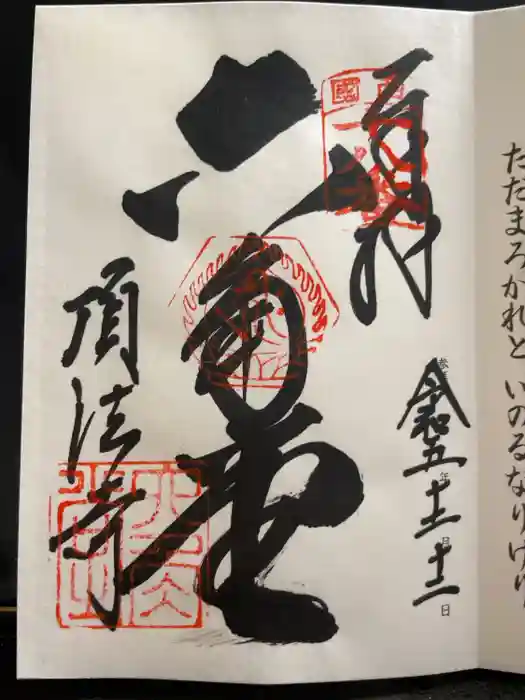 ただまろかれと いのるなりけり
奉拝
令和五年十二月十二日
六角堂
頂法寺